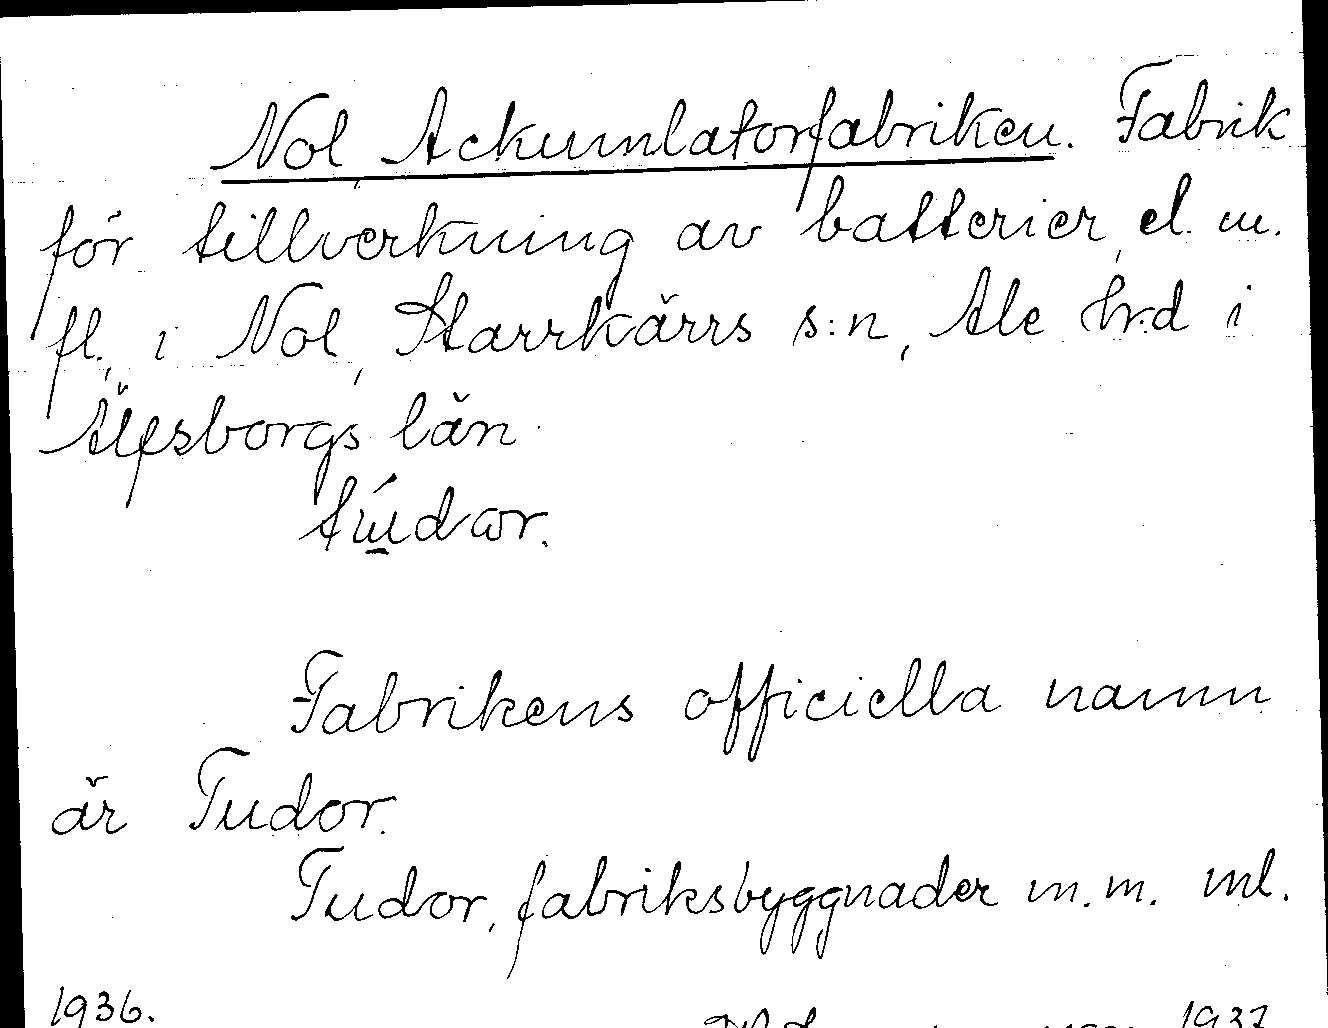 Nol Ackumlatorfabriken. Fabrik
för tillverkning av batterier el. m.
fl., i Nol, Starrkärrs s:n, Ale hrd i
Älfsborgs län
Fabrikens officiella namn
är Tudor.
Tudor, fabriksbyggnader m.m. ml.
1936. 1937